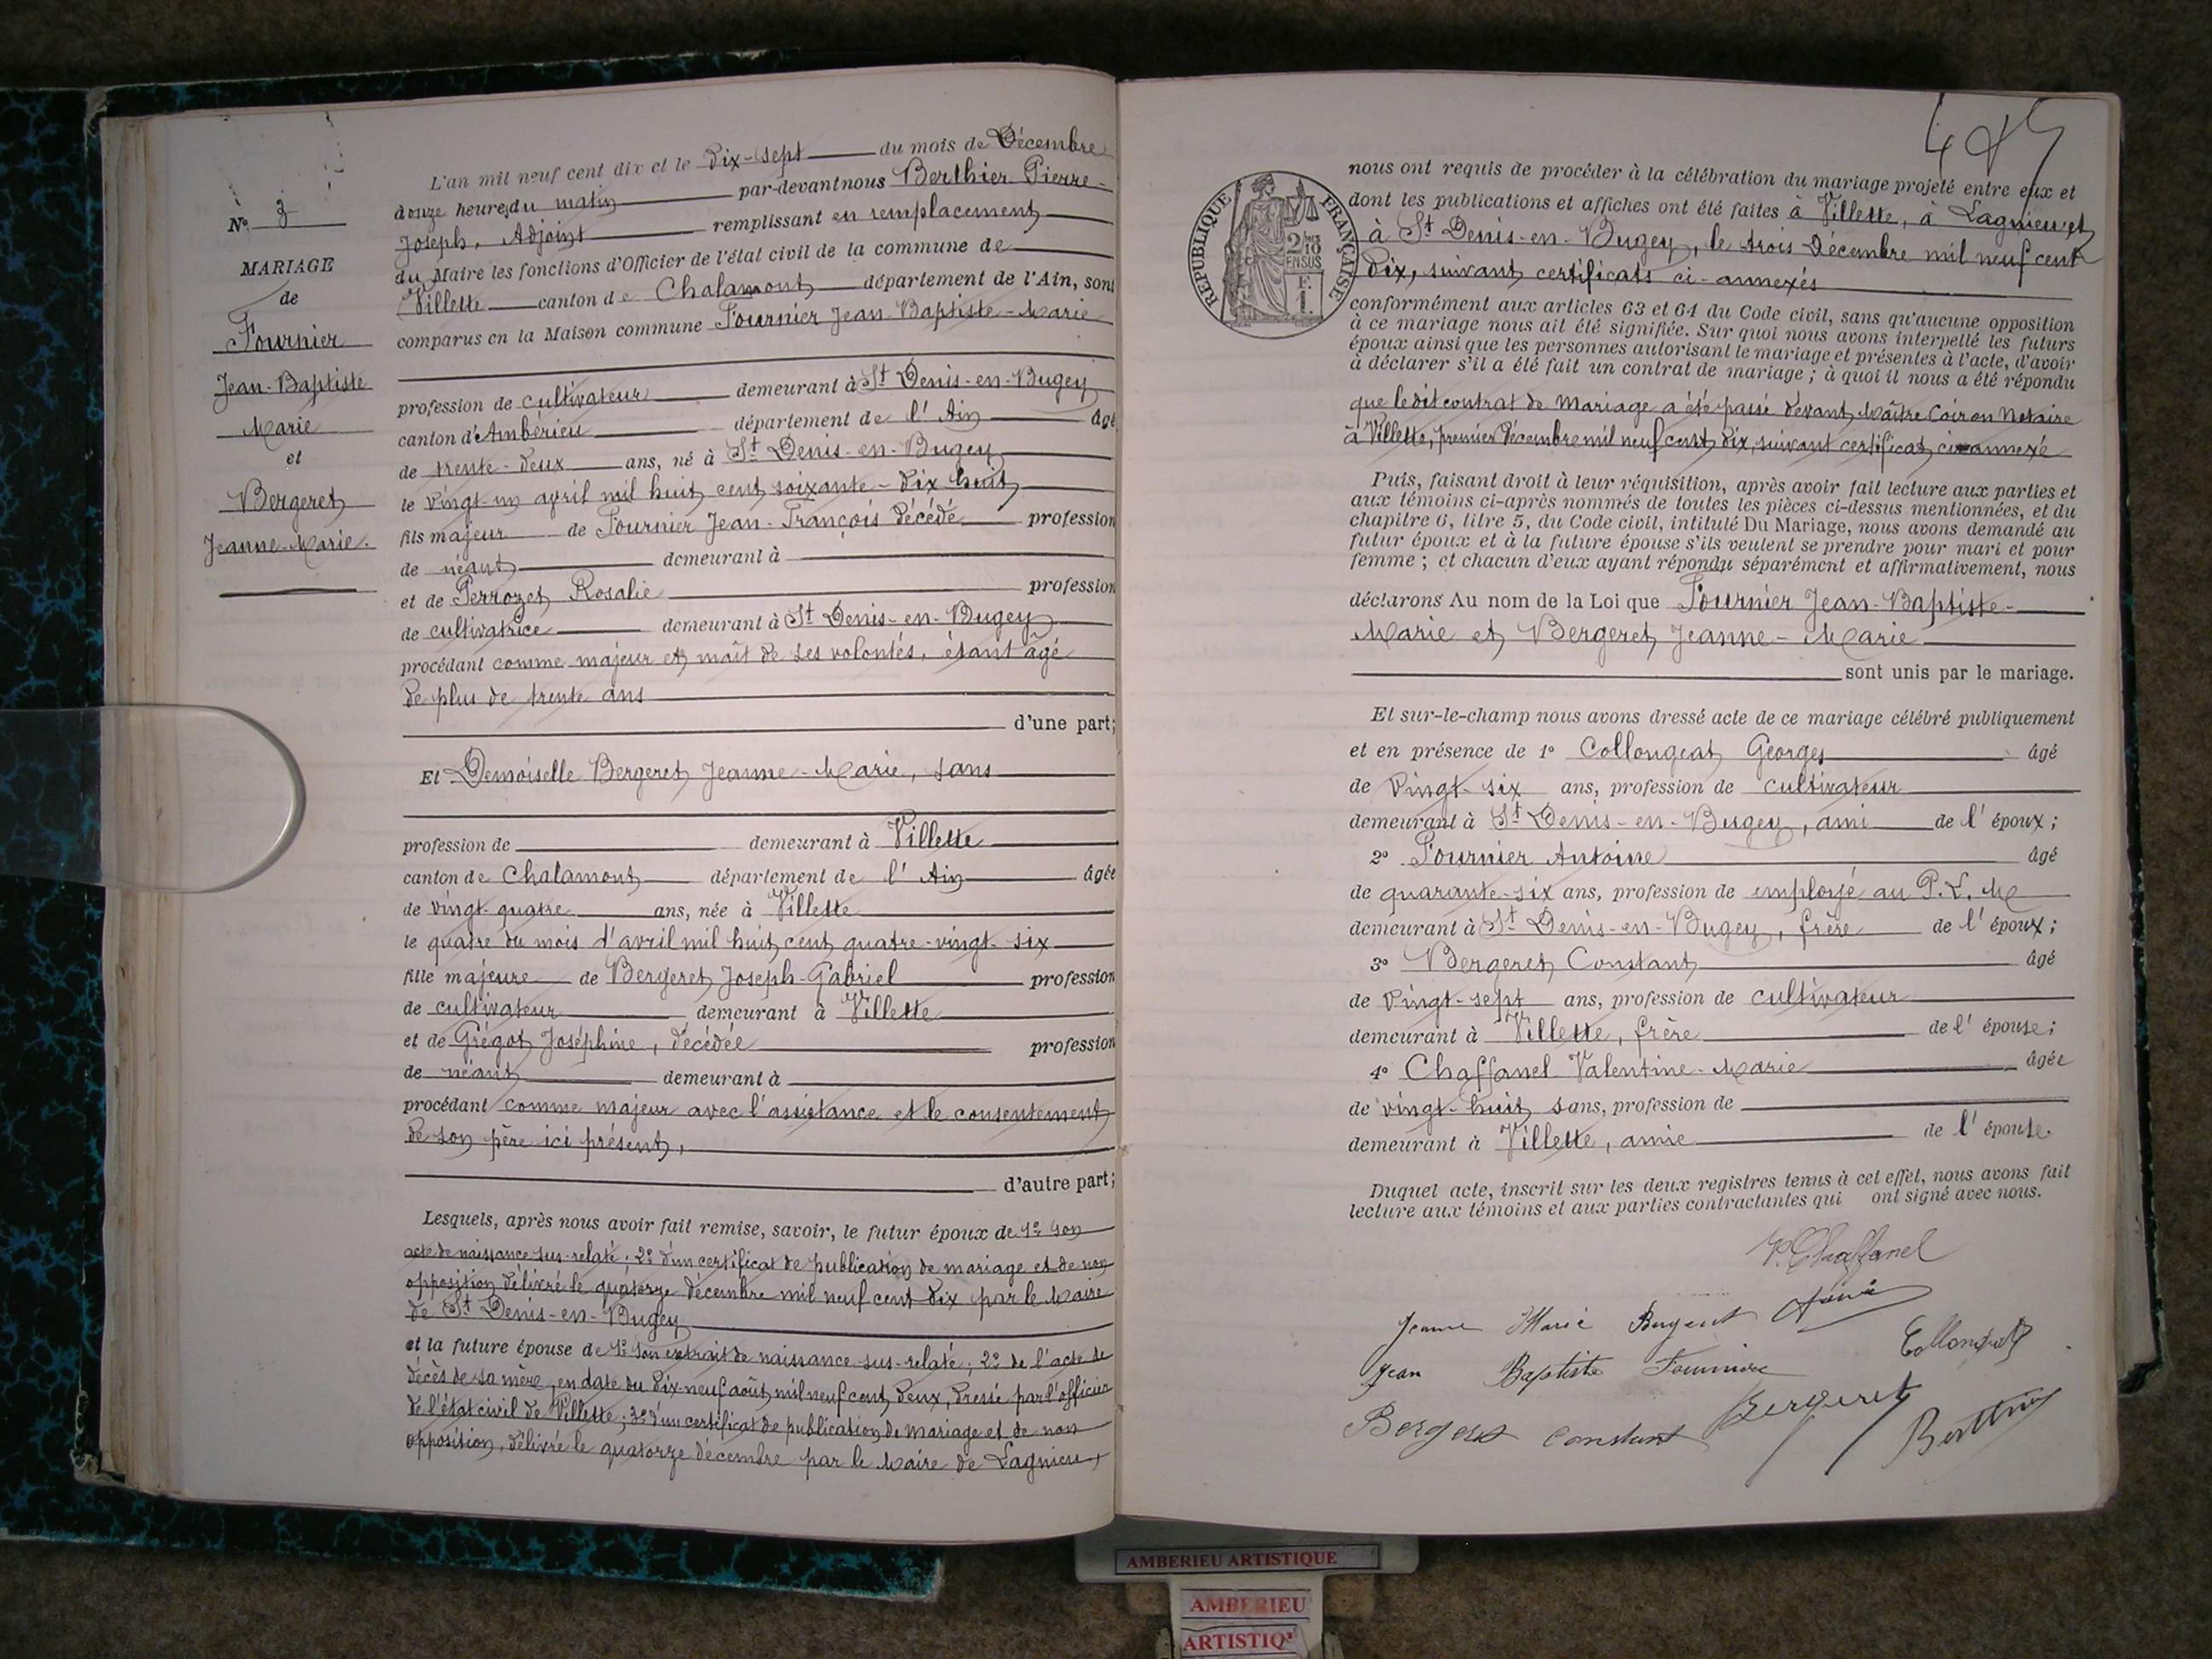 N° 3
MARIAGE
de
Fournier
Jean-Baptiste
Marie
et
Bergeret
Jeanne-Marie.
L'an mil neuf cent dix et le dix-sept du mois de Décembre
à onze heures du matin par-devant nous Berthier Pierre-
Joseph, Adjoint remplissant en remplacement
du Maire les fonctions d'Officier de l'état civil de la commune de
Villette canton de Chalamont département de l'Ain, sont
comparus en la Maison commune Fournier Jean-Baptiste-Marie
profession de cultivateur demeurant à St Denis-en-Bugey
canton d'Ambérieu département de l'Ain âgé
de trente-deux ans, né à St Denis-en-Bugey
le vingt-un avril mil huit cent soixante-dix huit
fils majeur de Fournier Jean-François décédé profession
de néant demeurant à
et de Perrozet Rosalie profession
de cultivatrice demeurant à St Denis-en-Bugey
procédant comme majeur et maît de ses volontés, étant âgé
de plus de trente ans
d'une part;
Et Demoiselle Bergeret Jeanne-Marie, sans
profession de demeurant à Villette
canton de Chalamont département de l'Ain âgée
de vingt-quatre ans, née à Villette
le quatre du mois d'avril mil huit cent quatre-vingt-six
fille majeure de Bergeret Joseph-Gabriel profession
de cultivateur demeurant à Villette
et de Grégot Joséphine, décédée profession
de néant demeurant à
procédant comme majeur avec l'assistance et le consentement
de son père ici présent,
d'autre part;
Lesquels, après nous avoir fait remise, savoir, le futur époux de 1° son
acte de naissance sus-relaté; 2° d'un certificat de publication de mariage et de non
opposition délivré le quatorze décembre mil neuf cent dix par le Maire
de St Denis-en-Bugey
et la future épouse de 1° son extrait de naissance sus-relaté; 2° de l'acte de
décès de sa mère, en date du dix-neuf août mil neuf cent deux, dressé par l'officier
de l'état civil de Villette; 3° d'un certificat de publication de mariage et de non
opposition, délivré le quatorze décembre par le Maire de Lagnieu,
RÉPUBLIQUE FRANÇAISE
2/10
EN SUS
F.
1.
nous ont requis de procéder à la célébration du mariage projeté entre eux et
dont les publications et affiches ont été faites à Villette, à Lagnieu et
à St Denis-en-Bugey, le trois Décembre mil neuf cent
dix, suivant certificats ci-annexés
conformément aux articles 63 et 64 du Code civil, sans qu'aucune opposition
à ce mariage nous ait été signifiée. Sur quoi nous avons interpellé les futurs
époux ainsi que les personnes autorisant le mariage et présentes à l'acte, d'avoir
à déclarer s'il a été fait un contrat de mariage; à quoi il nous a été répondu
que ledit contrat de Mariage a été passé devant Maître Coiron Notaire
à Villette, premier Décembre mil neuf cent dix, suivant certificat ci-annexé
Puis, faisant droit à leur réquisition, après avoir fait lecture aux parties et
aux témoins ci-après nommés de toutes les pièces ci-dessus mentionnées, et du
chapitre 6, titre 5, du Code civil, intitulé Du Mariage, nous avons demandé au
futur époux et à la future épouse s'ils veulent se prendre pour mari et pour
femme; et chacun d'eux ayant répondu séparément et affirmativement, nous
déclarons Au nom de la Loi que Fournier Jean-Baptiste-
Marie et Bergeret Jeanne-Marie
sont unis par le mariage.
Et sur-le-champ nous avons dressé acte de ce mariage célébré publiquement
et en présence de 1° Collongeat Georges âgé
de vingt-six ans, profession de cultivateur
demeurant à St Denis-en-Bugey, ami de l'époux;
2° Fournier Antoine âgé
de quarante-six ans, profession de employé au P.L.M
demeurant à St Denis-en-Bugey, frère de l'époux;
3° Bergeret Constant âgé
de vingt-sept ans, profession de cultivateur
demeurant à Villette, frère de l'épouse;
4° Chaffanel Valentine-Marie âgée
de vingt-huit sans, profession de
demeurant à Villette, amie de l'épouse.
Duquel acte, inscrit sur les deux registres tenus à cet effet, nous avons fait
lecture aux témoins et aux parties contractantes qui ont signé avec nous.
V. Chaffanel
Jeanne Marie Bergeret
Jean Baptiste Fournier
Collongeat
Bergeret Constant
Bergeret
Berthier
AMBERIEU ARTISTIQUE
AMBERIEU
ARTISTIQ